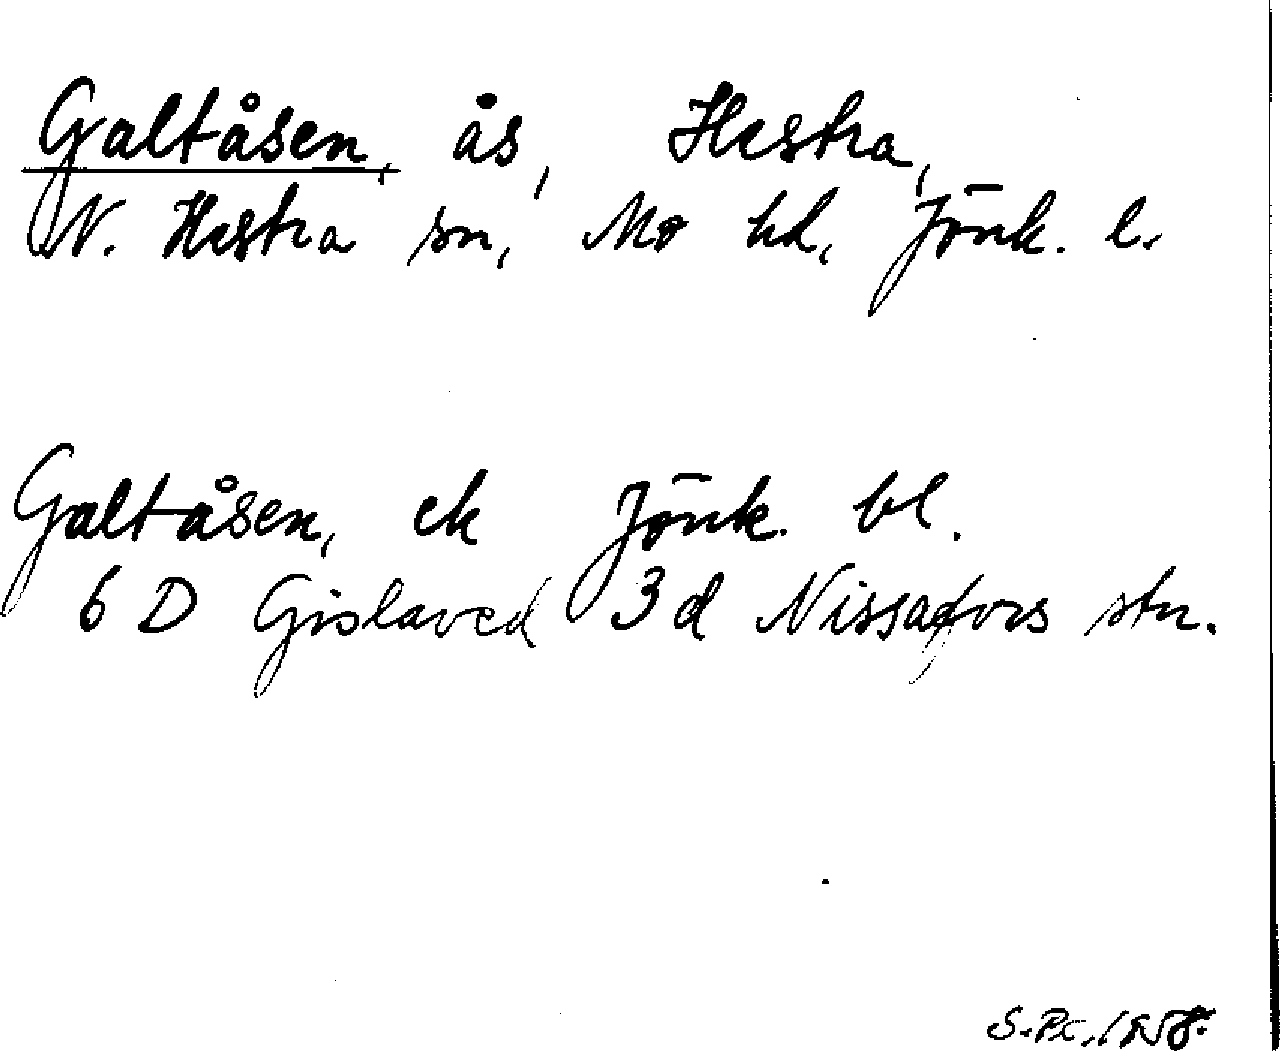 Galtåsen, ås, Hestra,
N. Hestra sn, Mo hd, Jönk. l.
Galtåsen, ek Jönk. bl.
6 D Gislaved 3 d Nissafors stn.
1958.